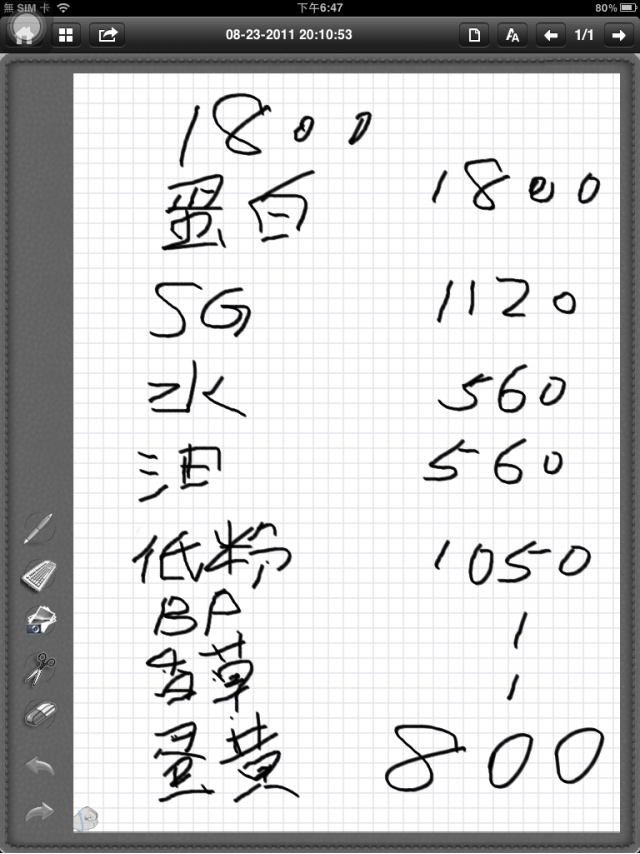 無 SIM 卡 下午6:47 80%
08-23-2011 20:10:53 1/1
1800
蛋白 1800
SG 1120
水 560
油 560
低粉 1050
BP 1
香草 1
蛋黄 800